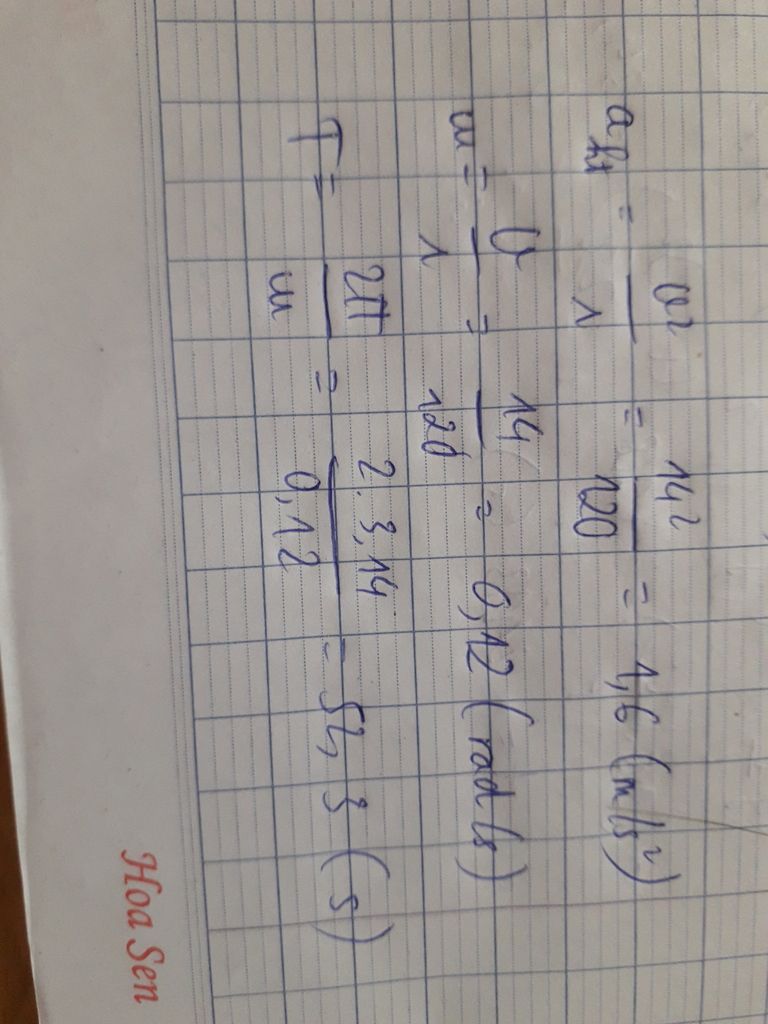 a_ht = v²/r = 14²/120 = 1,6 (m/s²)
ω = v/r = 14/120 = 0,12 (rad/s)
T = 2π/ω = 2.3,14/0,12 = 52,3 (s)
Hoa Sen